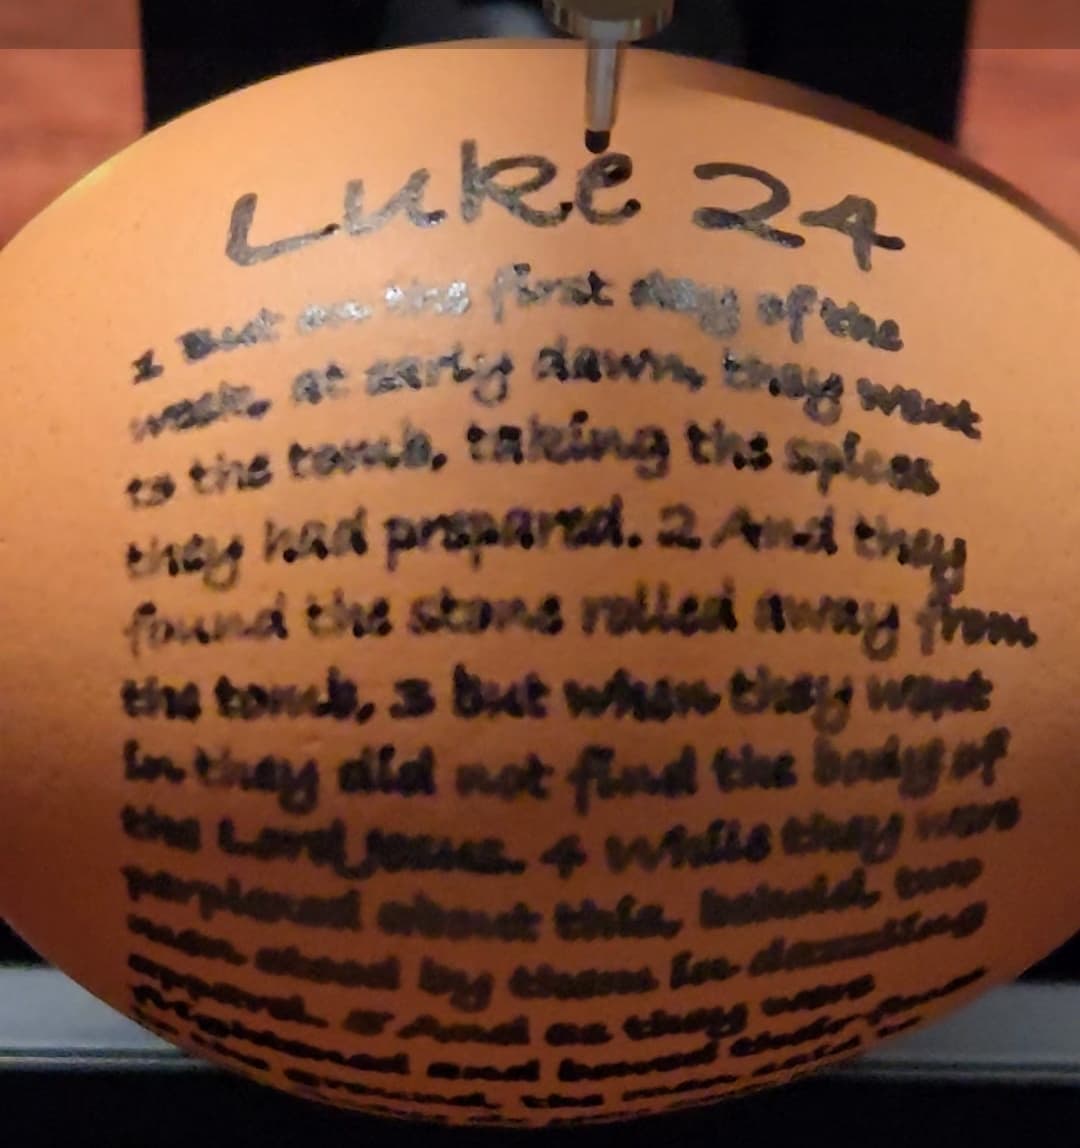 Luke 24
1 But on the first day of the
week, at early dawn, they went
to the tomb, taking the spices
they had prepared. 2 And they
found the stone rolled away from
the tomb, 3 but when they went
in they did not find the body of
the Lord Jesus. 4 While they were
perplexed about this, behold, two
men stood by them in dazzling
apparel. 5 And as they were
frightened and bowed their
ground, the men